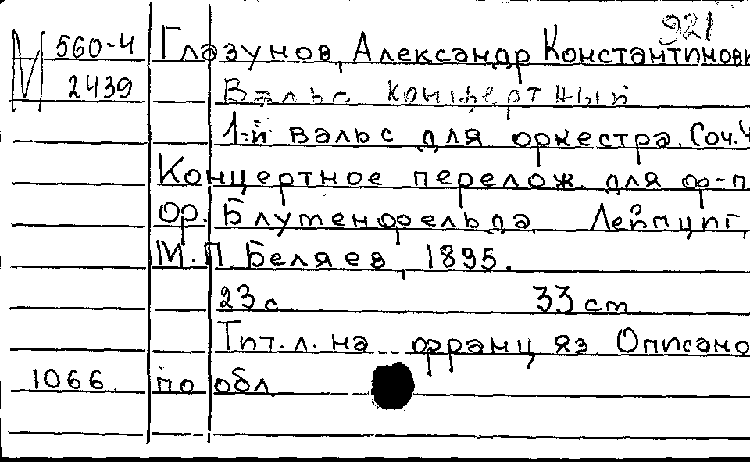 921
М 560-4 Глазунов, Александр Константинови
2439 Вальс концертный
1-й вальс для оркестра. Соч. 4
Концертное перелож. для ф-п.
Ф. Блуменфельда Лейпциг,
М.П. Беляев, 1895.
23 с 33 cm
Тит. л. на франц яз Описано
1066 по обл